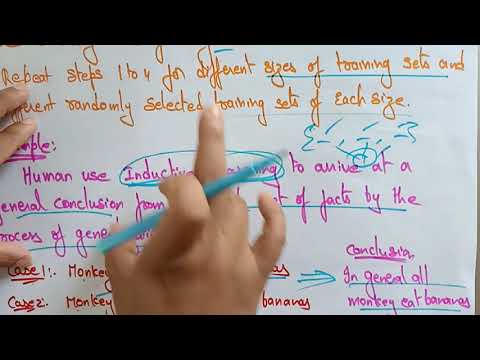 Repeat steps 1 to 4 for different sizes of training sets and
randomly selected training sets of each size.
Human use Inductive to arrive at a
general conclusion from of facts by the
process of
Case 1:- bananas
Case 2. bananas
Conclusion
In general all
monkey eat bananas